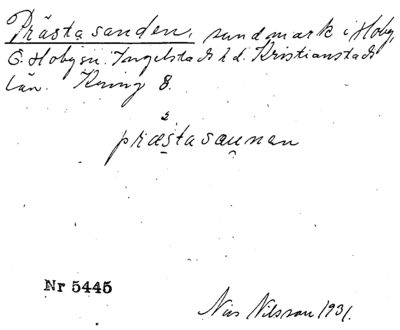 Prästasanden, sandmark i Hoby,
Ö. Hoby sn. Ingelstads hd. Kristianstads
län. Konung 8.
præstasaunan
Nr 5445
Nils Nilsson 1931.